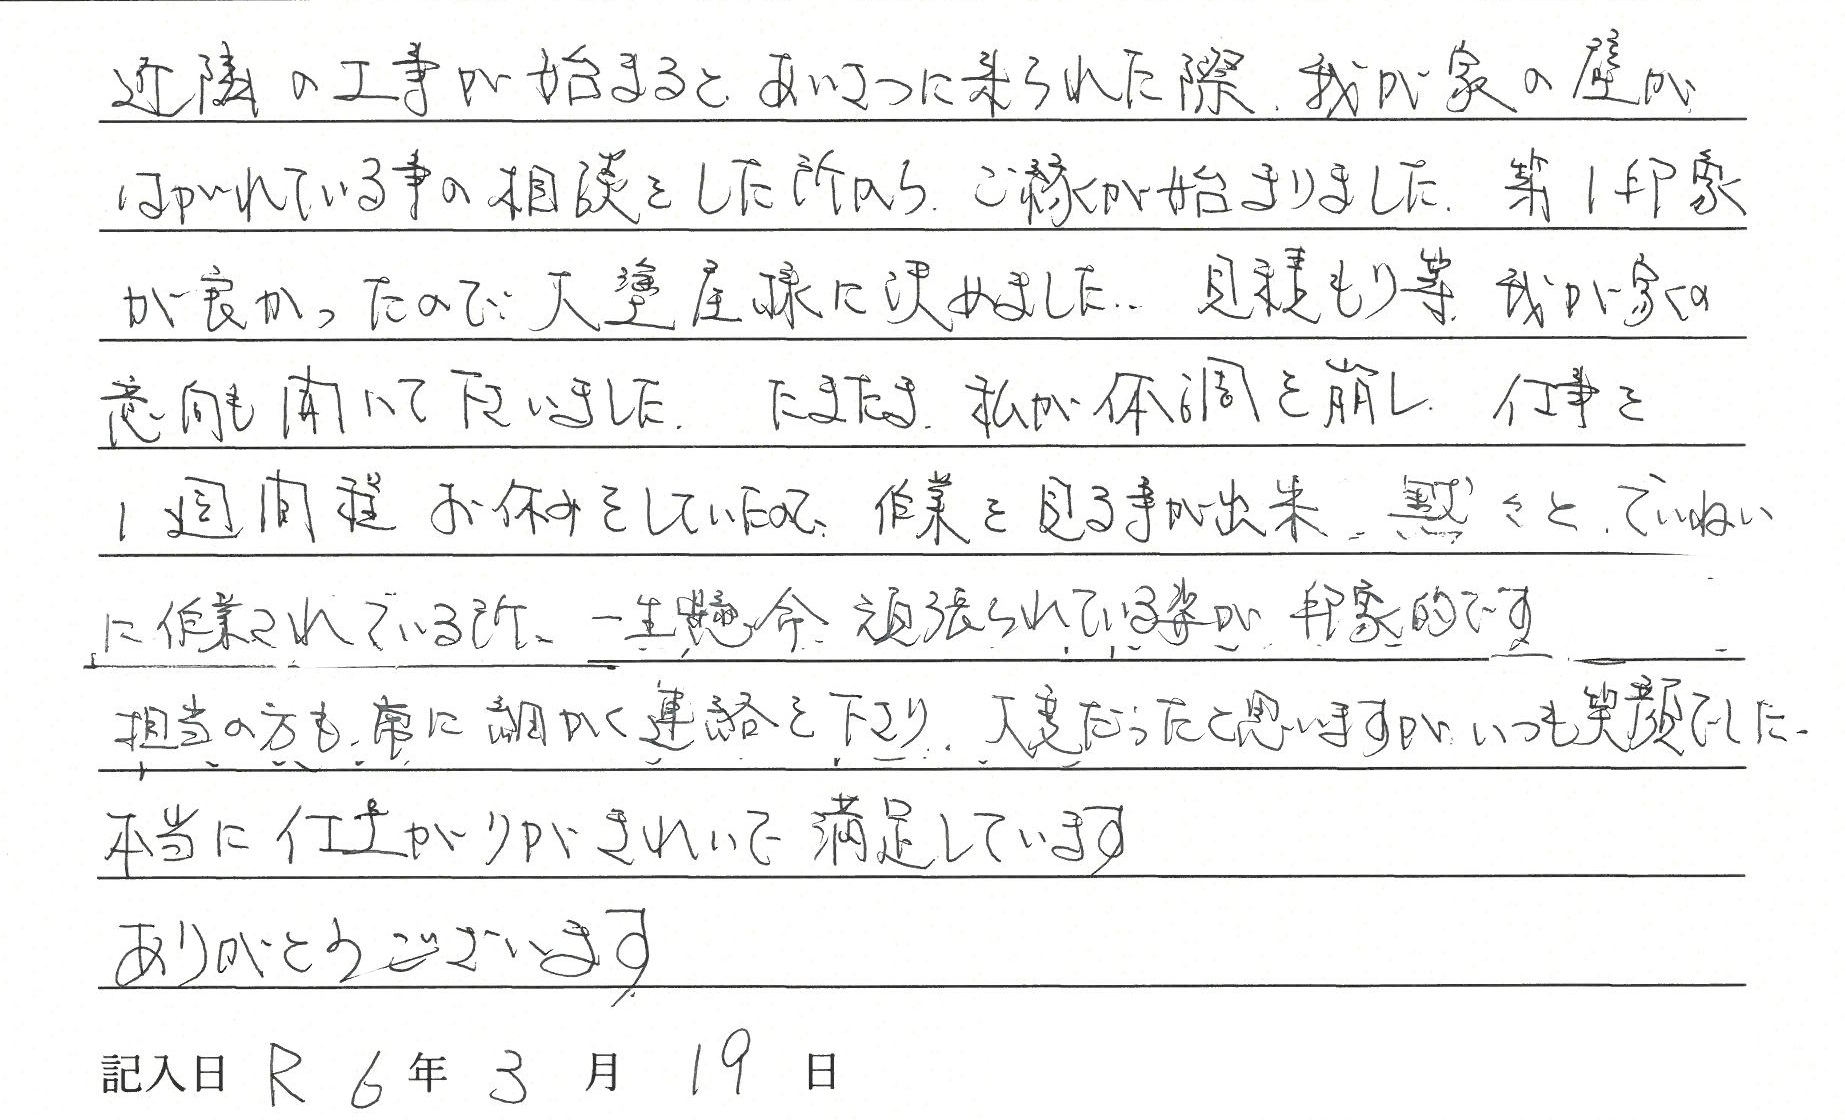 近隣の工事が始まると、あいさつに来られた際、我が家の壁が
はがれている事の相談をした所から、ご縁が始まりました。第1印象
が良かったので、大塗屋様に決めました。見積もり等、我が家の
意向も聞いて下さいました。たまたま、私が体調を崩し、仕事を
1週間程お休みをしていたので、作業を見る事が出来、黙々と、ていねい
に作業されている所、一生懸命頑張られている姿が、印象的です
担当の方も、常に細かく連絡を下さり、大変だったと思いますが、いつも笑顔でした。
本当に仕上がりがきれいで満足しています
ありがとうございます
記入日 R 6年 3月 19日